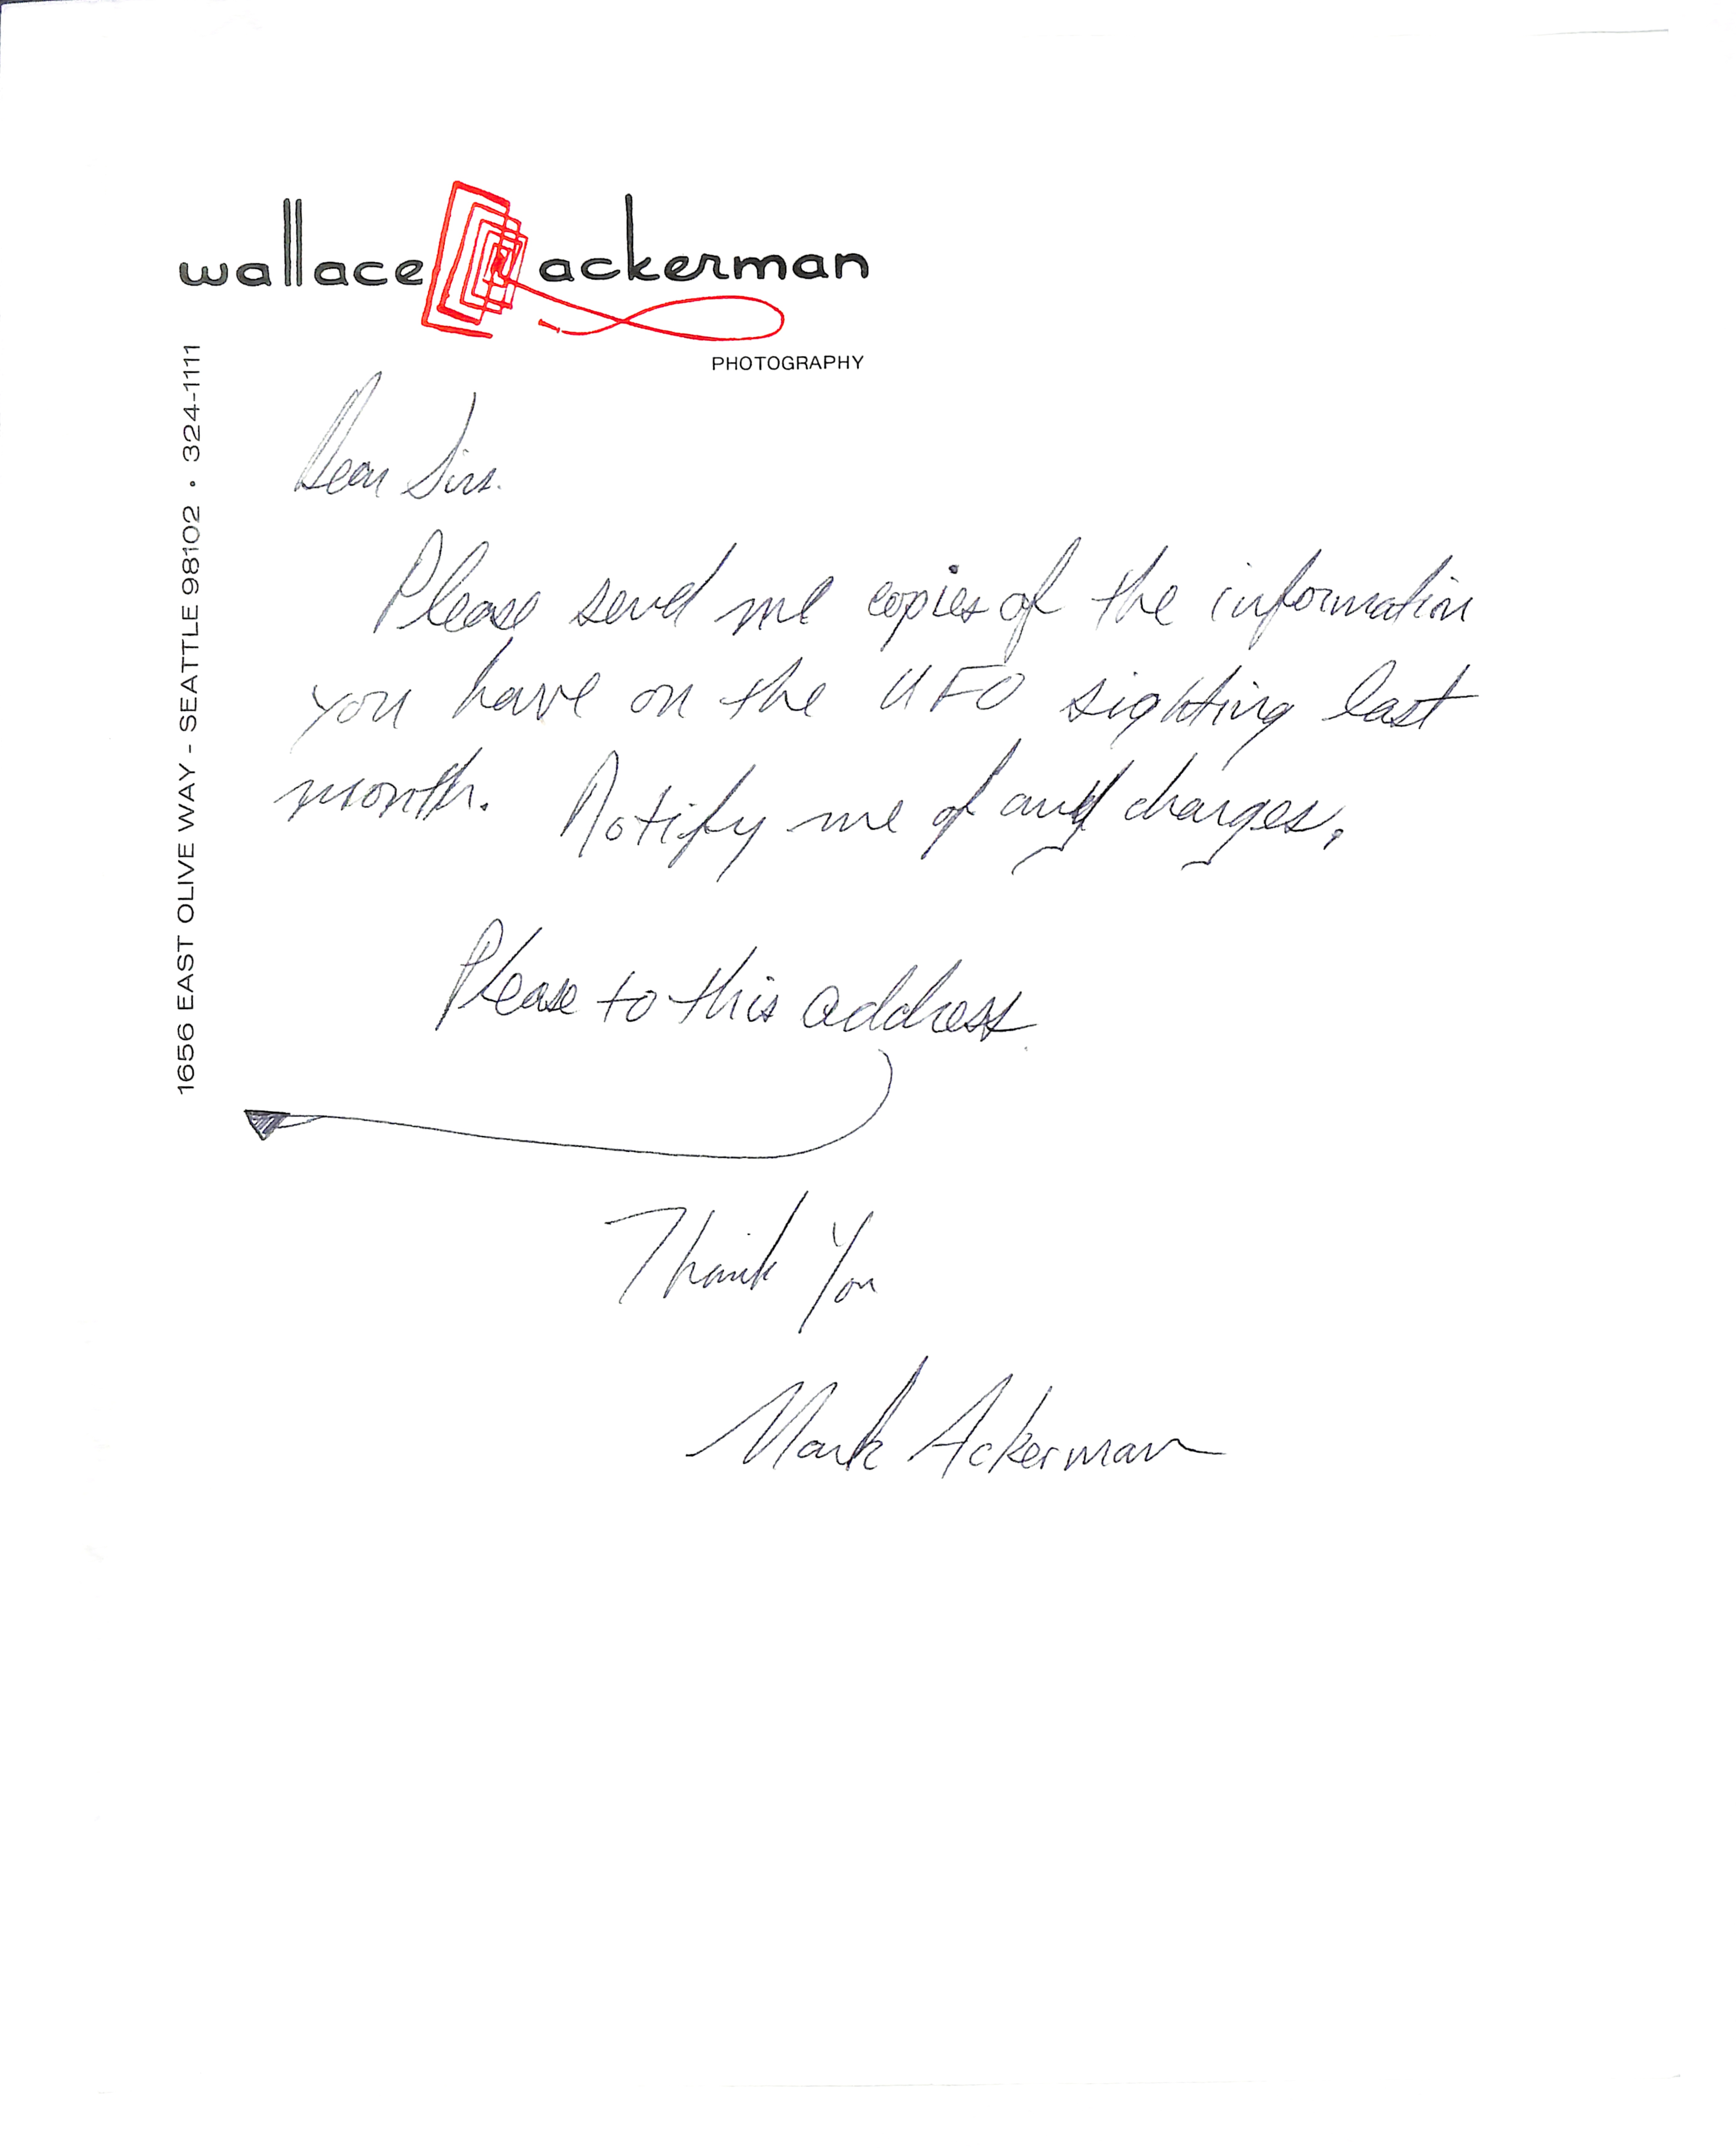 wallace ackerman
PHOTOGRAPHY
1656 EAST OLIVE WAY - SEATTLE 98102 • 324-1111
Dear Sirs.
Please send me copies of the information
you have on the UFO sighting last
month. Notify me of any charges.
Please to this address.
Thank You
Mark Ackerman